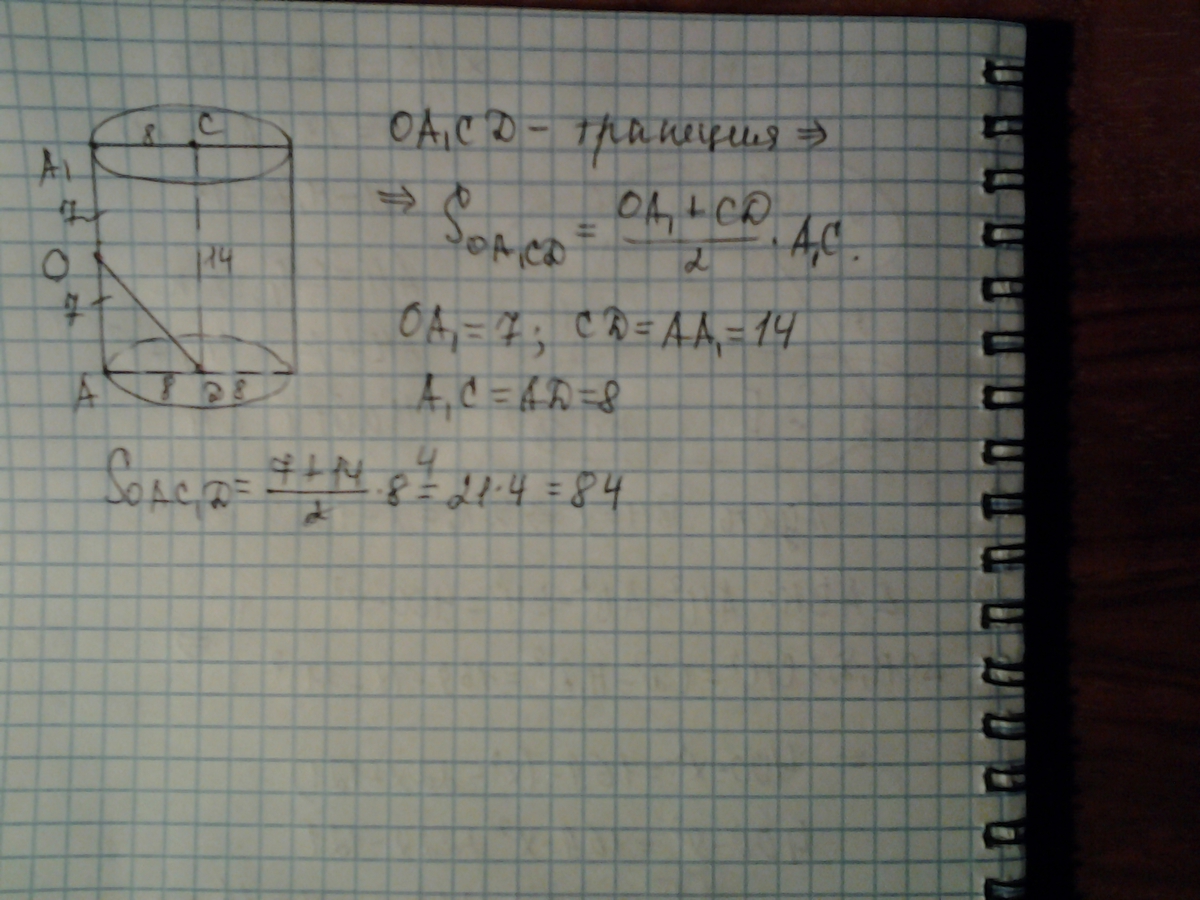 8 C
A₁
7
O
14
7
A
8 D 8
OA₁CD - трапеция ⇒
⇒ S_OA₁CD = (OA₁ + CD)/2 · A₁C.
OA₁ = 7; CD = AA₁ = 14
A₁C = AD = 8
S_OAC₁D = (7+14)/2 · 8⁴ = 21·4 = 84